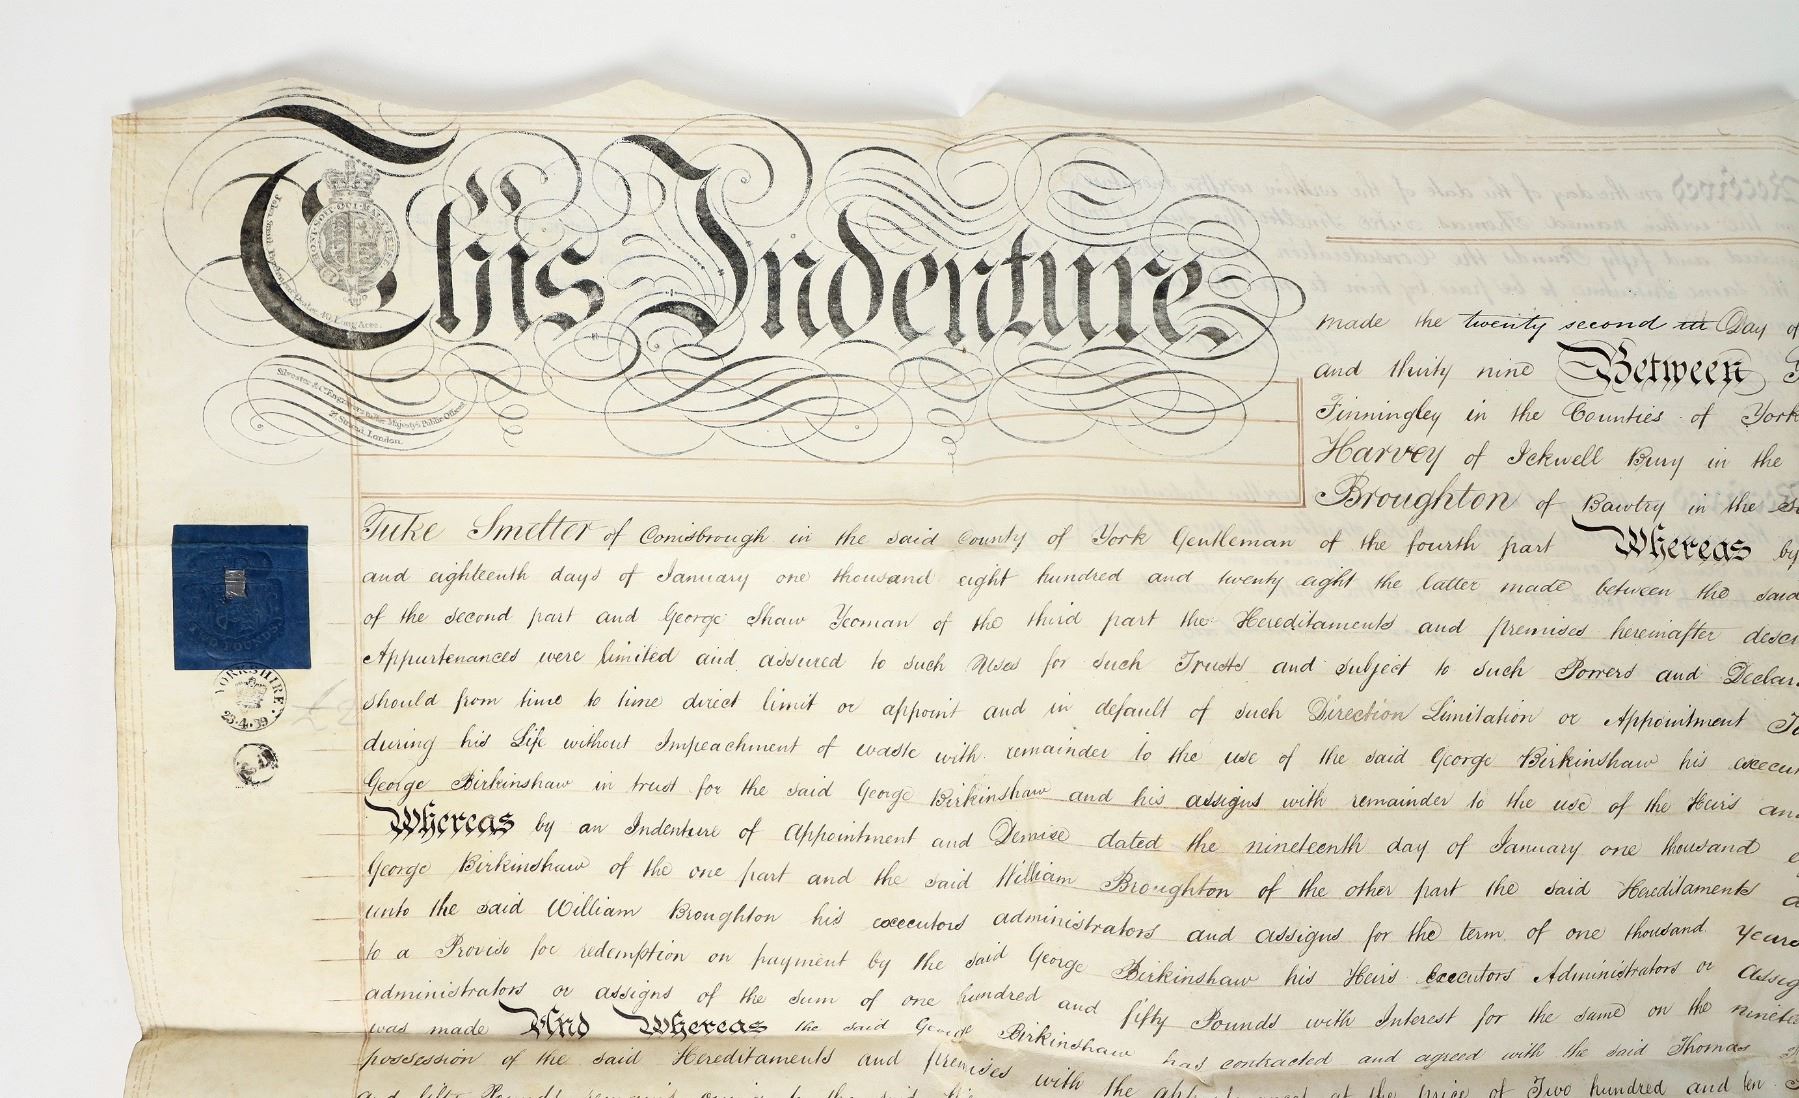 This Indenture
HONI SOIT QUI MAL Y PENSE
Long Acre.
Silvester & Co. Engravers to Her Majesty's Public Offices
27 Strand, London.
made the twenty second Day of
and thirty nine Between
Finningley in the Counties of York
Harvey of Ickwell Bury in the
Broughton of Bawtry in the
Tuke Smelter of Conisbrough in the said County of York Gentleman of the fourth part Whereas by
and eighteenth days of January one thousand eight hundred and twenty eight the latter made between the said
of the second part and George Shaw Yeoman of the third part the Hereditaments and premises hereinafter descr
Appurtenances were limited and assured to such Uses for such Trusts and subject to such Powers and Declar
should from time to time direct limit or appoint and in default of such Direction Limitation or Appointment To
during his Life without Impeachment of waste with remainder to the use of the said George Birkinshaw his execu
George Birkinshaw in trust for the said George Birkinshaw and his assigns with remainder to the use of the Heirs an
Whereas by an Indenture of Appointment and Demise dated the nineteenth day of January one thousand e
George Birkinshaw of the one part and the said William Broughton of the other part the said Hereditaments a
unto the said William Broughton his executors administrators and assigns for the term of one thousand Years
to a Proviso for redemption on payment by the said George Birkinshaw his Heirs Executors Administrators or assig
administrators or assigns of the sum of one hundred and fifty Pounds with Interest for the same on the ninete
was made And Whereas the said George Birkinshaw has contracted and agreed with the said Thomas
possession of the said Hereditaments and premises with the appurtenances at the price of Two hundred and ten
YORKSHIRE
23.4.39